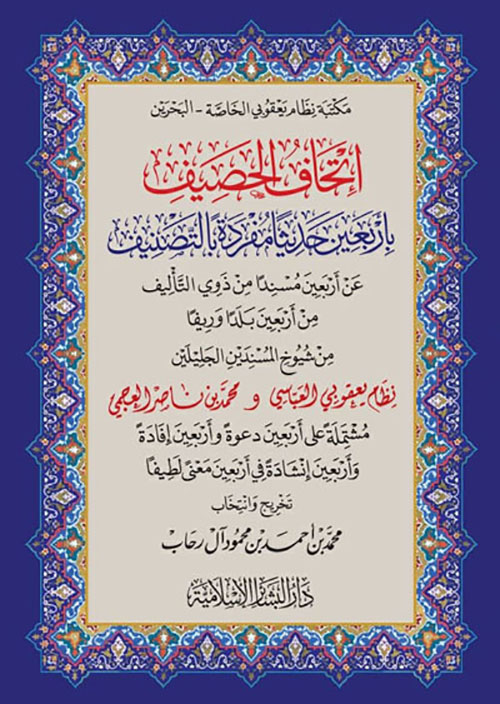 مَكتبَة نِظَام يَعقوبي الخَاصَّة - البَحْرَين
إتْحَافُ الحَصِيفِ
بِأَرْبَعِينَ حَدِيثًا مُفْرَدَةً بِالتَّصْنِيفِ
عَنْ أَرْبَعِينَ مُسْنِدًا مِنْ ذَوِي التَّأْلِيفِ
مِنْ أَرْبَعِينَ بَلَدًا وَرِيفًا
مِنْ شُيُوخِ المُسْنِدَيْنِ الجَلِيلَيْنِ
نِظَام يَعقُوبي العَبَّاسِي وَ محمَّد بْن نَاصِر العَجمِي
مُشْتَمِلَةً عَلَى أَرْبَعِينَ دَعوَةً وَأَرْبَعِينَ إفَادَةً
وَأَرْبَعِينَ إنْشَادَةً فِي أَرْبَعِينَ مَعْنًى لَطِيفًا
تَخْرِيج وَانْتِخَاب
محمَّد بْن أَحمَد بْن محمُود آل رحَاب
دَارُ البَشَائِرِ الإسْلَامِيَّة